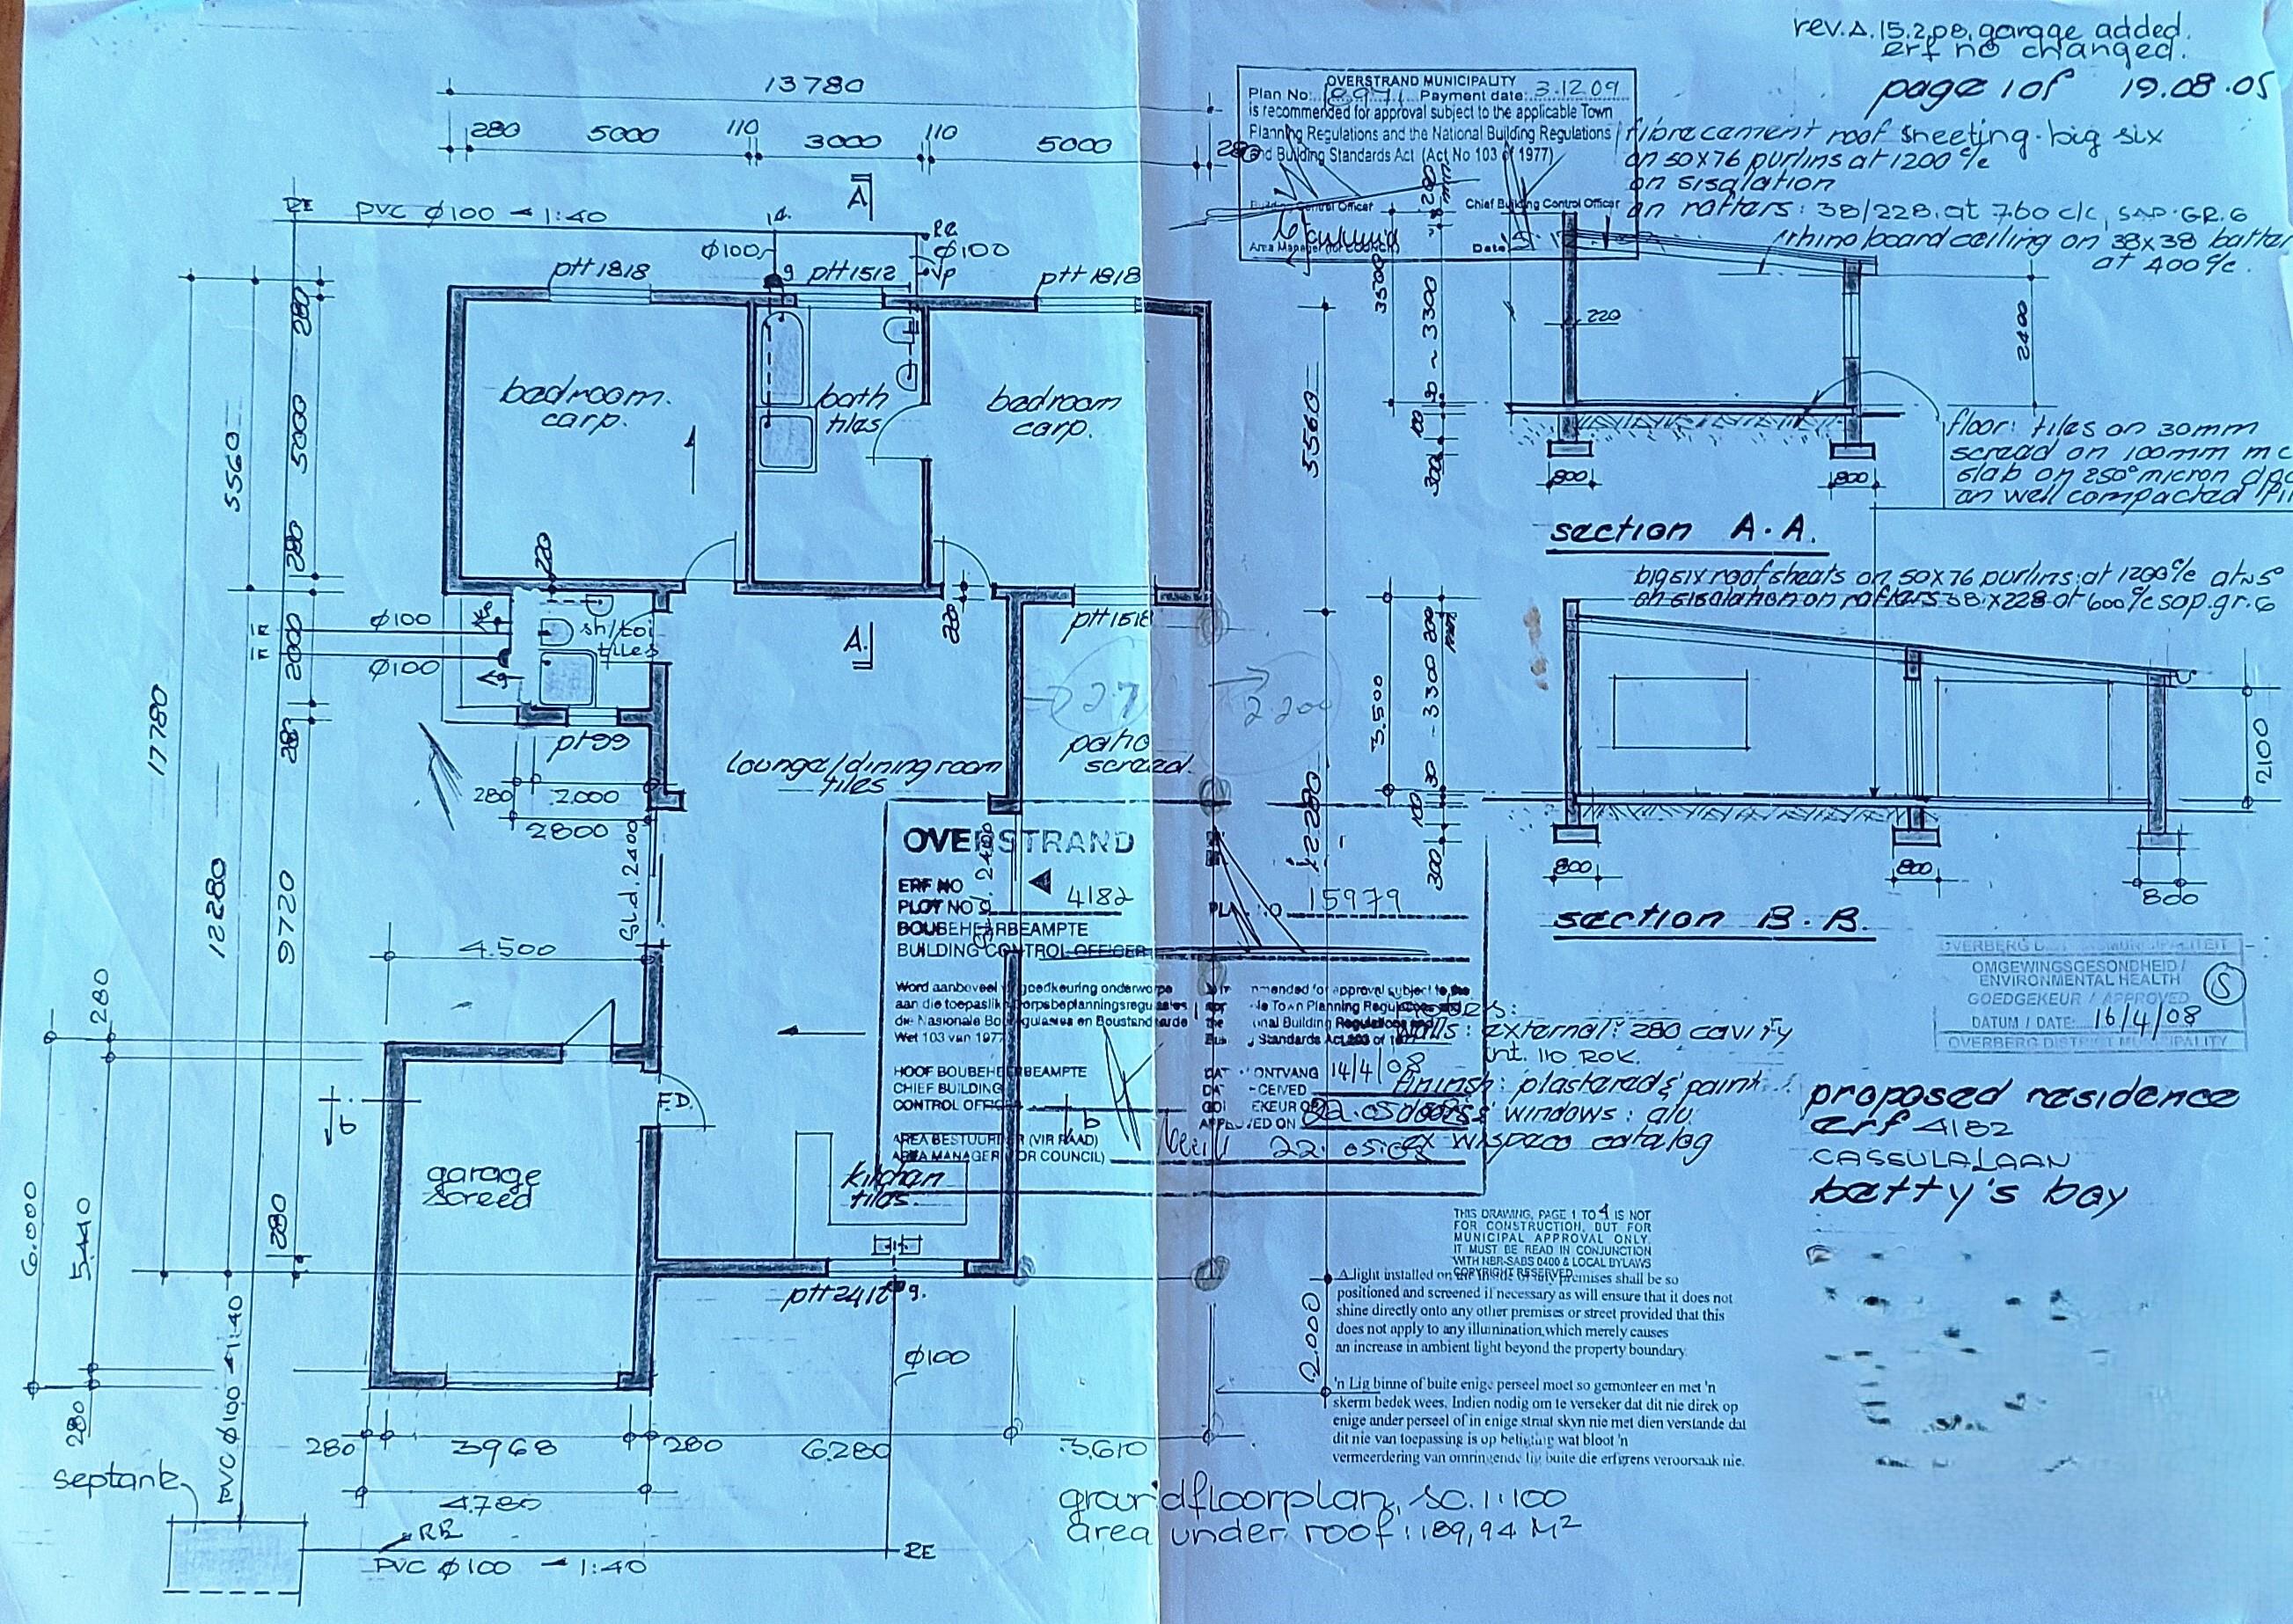 rev.A.15.2.08. garage added.
erf no changed.
page 1 of 19.08.05
OVERSTRAND MUNICIPALITY
Plan No: 8971 Payment date: 3.12.09
is recommended for approval subject to the applicable Town
Planning Regulations and the National Building Regulations
and Building Standards Act (Act No 103 of 1977)
Building Control Officer
Chief Building Control Officer
Area Manager (for COUNCIL)
Date:
fibrecement roof sheeting. big six
on 50x76 purlins at 1200 c/c
on sisalation
on rafters: 38/228. at 760 c/c, SAP. GR. 6
rhino board ceiling on 38x38 batten
at 400 c/c.
13780
280 5000 110 3000 110 5000 280
RE
PVC ϕ100 1:40
A
RE
ϕ100
ϕ100
g
vp
ptt 1818
ptt 1512
ptt 1818
bedroom.
carp.
bath
tiles
bedroom
carp.
280
5000
280
5560
2000
280
17780
12280
9720
280
220
ϕ100
ϕ100
sh/toi
tiles
g
pt 99
280 2.000
2800
A.
220
ptt 1518
27
2.200
lounge/dining room
tiles
patio
screed.
5560
12280
Sld. 2400
Sld. 2400
4.500
280
6.000
5.440
280
b
F.D.
b
garage
screed
kitchen
tiles.
ptt 2412
g.
PVC ϕ100 1:40
ϕ100
280 3968 280 6280 3.610
4.780
2.000
septank
RE
PVC ϕ100 1:40
RE
groundfloorplan, sc. 1:100
area under roof: 189,94 M²
280
min
3500
3300
30
100
300
220
2400
800
800
floor: tiles on 30mm
screed on 100mm mc
slab on 250 micron dpc
on well compacted fil
section A.A.
big six roof sheets on 50x76 purlins at 1200 c/c at ~5°
on sisalation on rafters 38x228 at 600 c/c sap.gr.6
200
min
3.500
3300
30
100
300
2100
800
800
800
section B.B.
OVERSTRAND
ERF NO
PLOT NO 4182
PLAN NO 15979
BOUBEHEERBEAMPTE
BUILDING CONTROL OFFICER
Word aanbeveel vir goedkeuring onderworpe
aan die toepaslike Dorpsbeplanningsregulasies
die Nasionale Bouregulasies en Boustandaarde
Wet 103 van 1977
HOOF BOUBEHEERBEAMPTE
CHIEF BUILDING
CONTROL OFFICER
AREA BESTUURDER (VIR RAAD)
AREA MANAGER (FOR COUNCIL)
DATUM ONTVANG
DATE RECEIVED 14/4/08
GOEDGEKEUR OP
APPROVED ON
22.05.08
walls: external: 280 cavity
int. 110 ROK.
fininsh: plastered & paint.
doors & windows: alu.
ex wispeco catalog
OVERBERG DISTRIKSMUNISIPALITEIT
OMGEWINGSGESONDHEID /
ENVIRONMENTAL HEALTH
GOEDGEKEUR / APPROVED
DATUM / DATE: 16/4/08
OVERBERG DISTRICT MUNICIPALITY
proposed residence
erf 4182
CASSULALAAN
betty's bay
THIS DRAWING, PAGE 1 TO 4 IS NOT
FOR CONSTRUCTION, BUT FOR
MUNICIPAL APPROVAL ONLY.
IT MUST BE READ IN CONJUNCTION
WITH NBR-SABS 0400 & LOCAL BYLAWS
COPYRIGHT RESERVED
A light installed on the inside of any premises shall be so
positioned and screened if necessary as will ensure that it does not
shine directly onto any other premises or street provided that this
does not apply to any illumination which merely causes
an increase in ambient light beyond the property boundary
'n Lig binne of buite enige perseel moet so gemonteer en met 'n
skerm bedek wees. Indien nodig om te verseker dat dit nie direk op
enige ander perseel of in enige straat skyn nie met dien verstande dat
dit nie van toepassing is op beligting wat bloot 'n
vermeerdering van omringende lig buite die erfgrens veroorsaak nie.